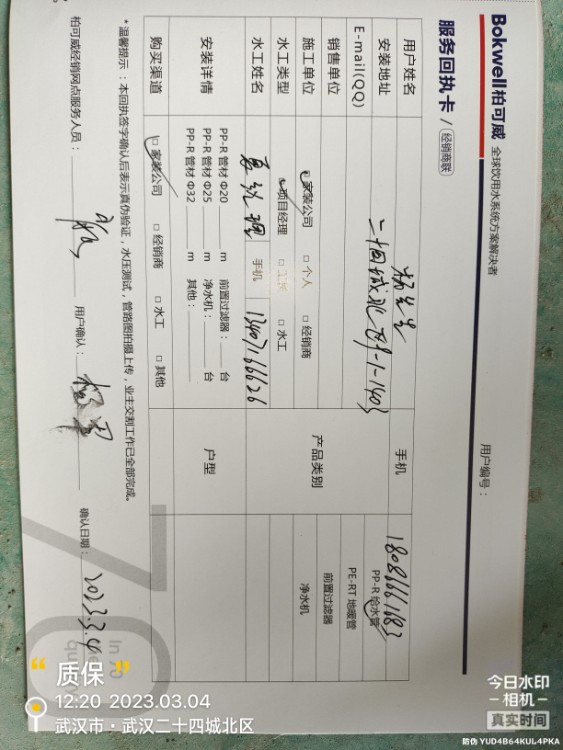 Bokwell柏可威 全球饮用水系统方案解决者
服务回执卡 / 经销商联
用户编号：
用户姓名 杨先生 手机 18086661683
安装地址 二十四城北区9-1-1403
E-mail(QQ)
销售单位
产品类别
PP-R 给水管
PE-RT 地暖管
前置过滤器
净水机
施工单位 家装公司 □ 个人 □ 经销商
水工类型 项目经理 □ 工长 □ 水工
水工姓名 手机 13407166626
安装详情
PP-R 管材 Φ20 m 前置过滤器： 台
PP-R 管材 Φ25 m 净水机： 台
PP-R 管材 Φ32 m 其他：
户型
购买渠道 □ 家装公司 □ 经销商 □ 水工 □ 其他
*温馨提示：本回执签字确认后表示真伪验证，水压测试，管路图拍摄上传，业主交割工作已全部完成。
柏可威经销网点服务人员： 用户确认： 确认日期： 2023.3.4
“ 质保 ”
12:20 2023.03.04
武汉市·武汉二十四城北区
今日水印
- 相机 -
真实时间
防伪 YUD4B64KUL4PKA